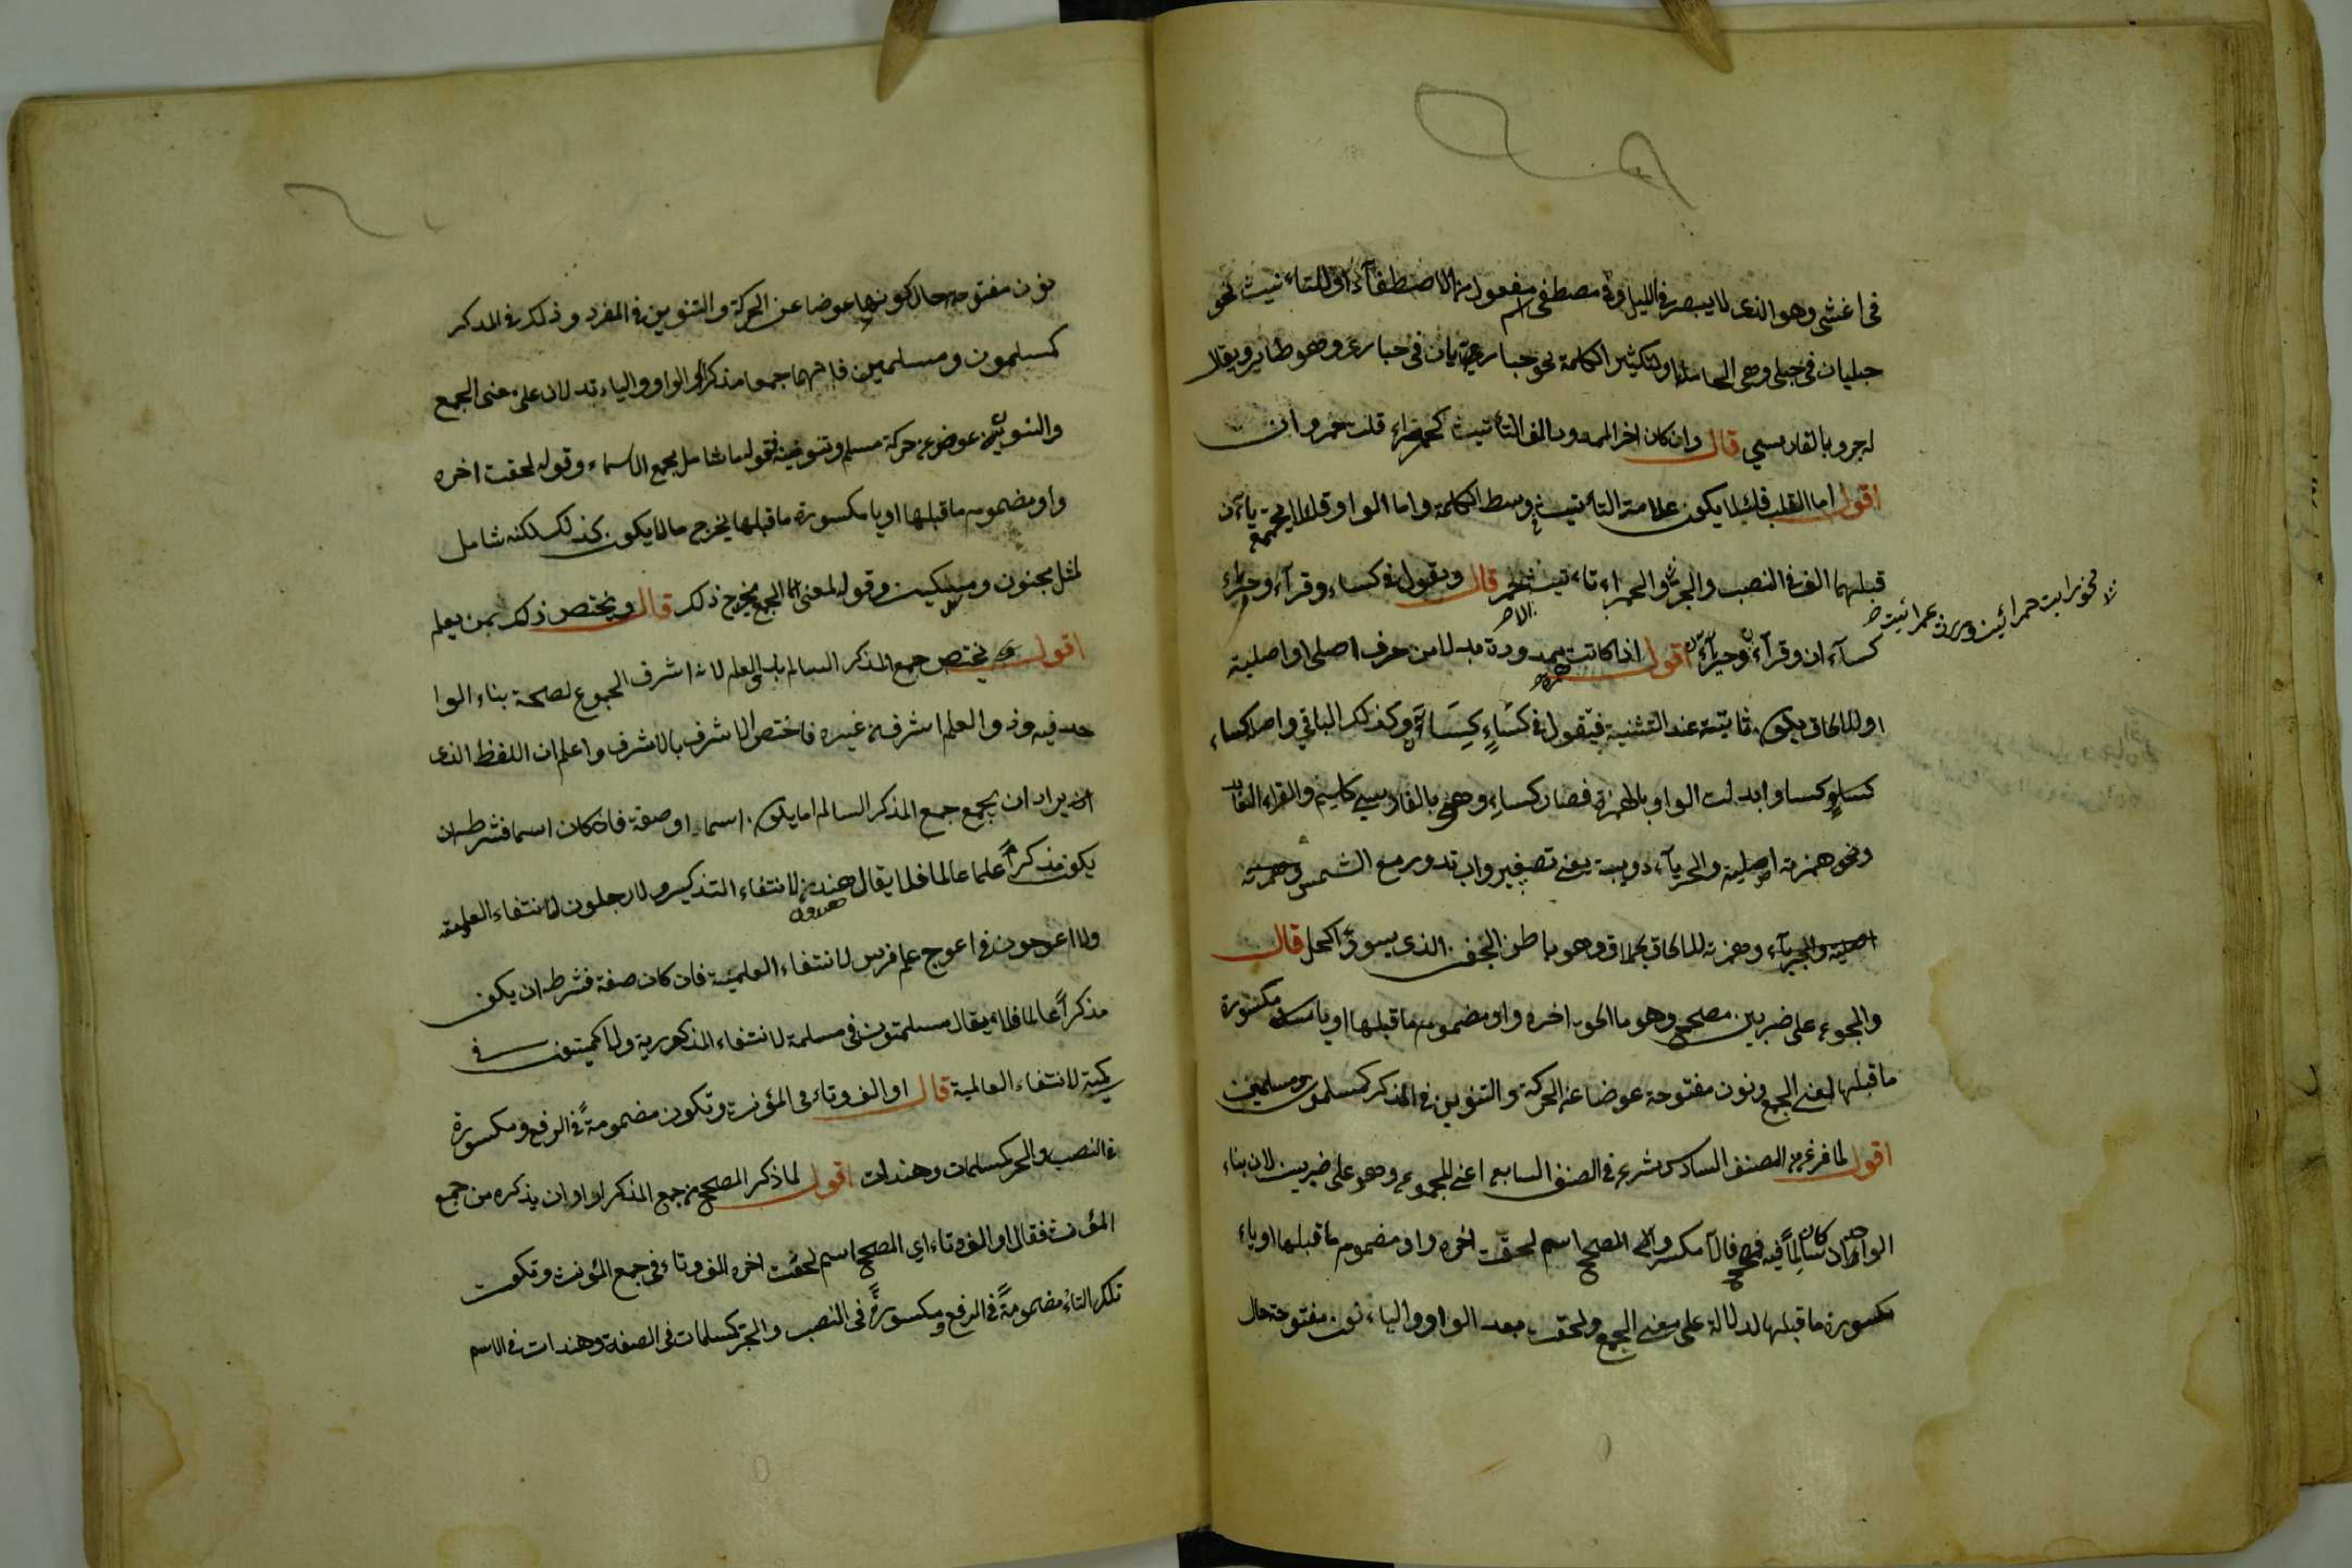 فى اعشى وهو الذى لا يبصر فى الليل وفى مصطفى اسم مفعول من الاصطفآء او للتانيث نحو
حبليان فى حبلى وهى الحاملة او لتكثير الكلمة نحو حباريان فى حبارى وهو طاير ويقال
له جرو بالفارسي قال وان كان اخر الممدود الف التأنيث كحمراء قلت حمروان
اقول اما القلب فلئلا يكون علامة التأنيث فى وسط الكلمة واما الواو فلئلا يجتمع يا آن
قبلهما الف فى النصب والجر والحمراء تانيث احمر قال وتقول فى كساء وقرآء وحرباء
كسآءان وقرآءان وحربآءان اقول اذا كانت ممدودة بدلا من حرف اصلى او اصلية
او للالحاق يكون ثابتة عند التثنية فيقول فى كساء كساءان وكذلك الباقي واصل كساء
كساو ابدلت الواو بالهمزة فصار كساء وهى بالفارسي كليم والقراء القارى
ونحو همزته اصلية والحربآء دويبة يعنى تصغير داب تدور مع الشمس وهمزته
وهمزته للالحاق بحملاق وهو باطن الجفن الذى يسوده الكحل قال
والمجموع على ضربين مصحح وهو ما لحق اخره واو مضموم ما قبلها او ياء مكسورة
ما قبلها لمعنى الجمع ونون مفتوحة عوضا عن الحركة والتنوين فى المذكر كمسلمون ومسلمين
اقول لما فرغ من الصنف السادس شرع فى الصنف السابع اعنى المجموع وهو على ضربين لان بناء
الواحد ان كان سالماً فيه فمصحح والا فمكسر المصحح اسم لحقت اخره واو مضموم ما قبلها او ياء
مكسورة ما قبلها لدلالة على معنى الجمع ولحقت بعد الواو والياء نون مفتوحة حال
نحو رايت حمرائين ومررت بحمرائين
نون مفتوحة حال كونها عوضا عن الحركة والتنوين فى المفرد وذلك فى المذكر
كمسلمون ومسلمين فانهما جمعا مذكر الواو والياء تدلان على معنى الجمع
والنون عوض عن حركة مسلم وتنوينه فقوله ما شامل لجمع الاسماء وقوله لحقت اخره
واو مضموم ما قبلها او يا مكسورة ما قبلها يخرج ما لا يكون كذلك لكنه شامل
لمثل مجنون ومسكين وقوله لمعنى الجمع يخرج ذلك قال ويختص ذلك بمن يعلم
اقول يختص جمع المذكر السالم باولى العلم لانه اشرف الجموع لصحة بناء الوا
حد فيه وذو العلم اشرف من غيره فاختص الاشرف بالاشرف واعلم ان اللفظ الذى
يراد ان يجمع جمع المذكر السالم اما يكون اسما او صفة فان كان اسما فشرطه ان
يكون مذكراً علما عالما فلا يقال هندون لانتفاء التذكير ولا رجلون لانتفاء العلمية
ولا اعوجون فى اعوج علم فرس لانتفاء العلمية فان كان صفة فشرطه ان يكون
مذكراً عالما فلا يقال مسلمتون فى مسلمة لانتفاء المذكورية ولا كميتون فى
كميت لانتفاء العالمية قال او الف وتاء فى المؤنث وتكون مضمومةً فى الرفع ومكسورة
فى النصب والجر كمسلمات وهندات اقول لما ذكر المصحح من جمع المذكر اراد ان يذكره من جمع
المؤنث فقال او الف وتاء اي المصحح اسم لحقت اخره الف وتاء فى جمع المؤنث وتكون
تلك التاء مضمومةً فى الرفع ومكسورةً فى النصب والجر كمسلمات فى الصفة وهندات فى الاسم